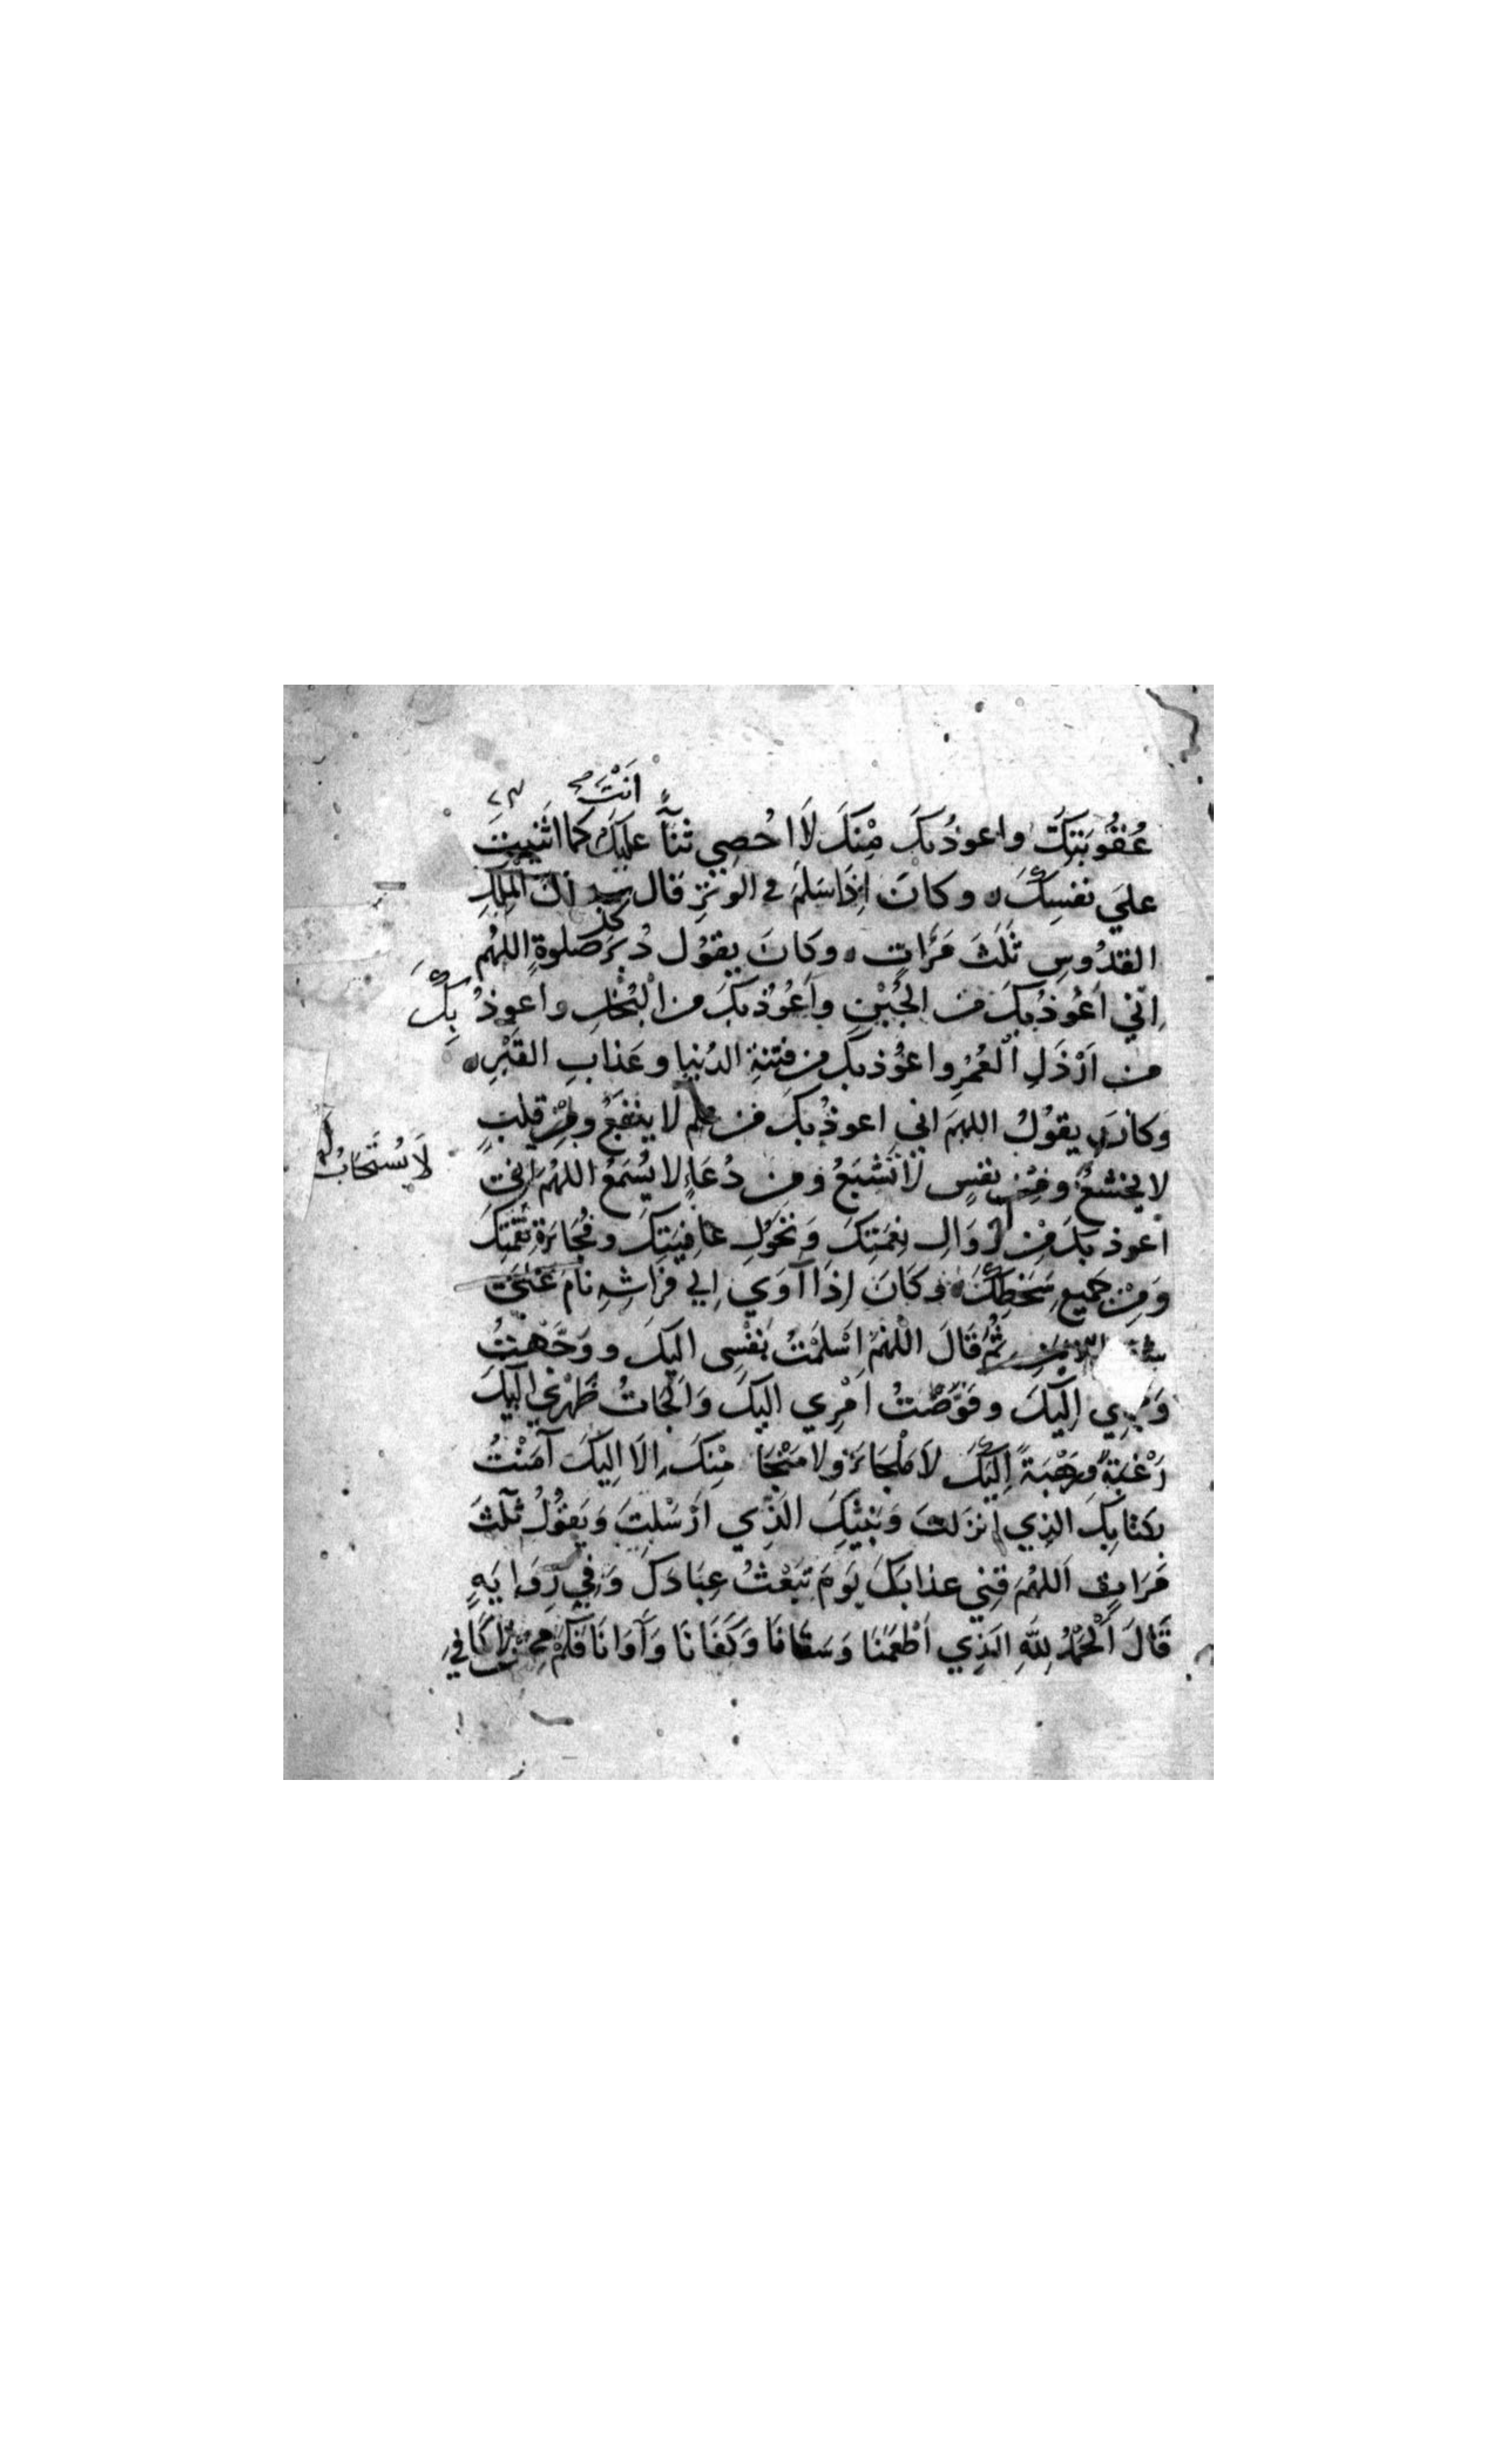 انت
عُقُوبَتِكَ واعوذُبكَ مِنْكَ لَا اُحْصِي ثنآًءً عليكَ كما اثنيتَ
علي نفسِكَ وكانَ اِذَا سَلَّمَ في الوِتْرِ قال سبحانَ الملِكِ
القدُوسِ ثَلثَ مَرَّاتٍ وكانَ يقوُل دُبُرَ صلوةٍ اللهُم
اِنّي اَعُوذُ بِكَ مِنَ الجُبْنِ وَاَعُوْذُ بِكَ مِنَ الْبُخْلِ واعوذُ بِكَ
مِن اَرْذَلِ الْعُمُرِ واعُوذ بكَ مِن فِتنةِ الدُنيا وعَذابِ القَبْرِ
وكان يقوُلُ اللهمَ اني اعوذُبكَ مِن علم لا ينفعُ ومِنْ قلبٍ
لا يخشعُ ومِنْ نفسٍ لَا تَشْبَعُ ومِن دُعَاءٍ لا يُسْمَعُ اللهُمَ اِنيّ
لَا يُسْتَجَابُ لَهُ
اَعوذ بكَ مِنْ زَوَالِ نِعْمَتِكَ وَتَحَوُّلِ عافِيَتِكَ وفُجَاءَةِ نِقْمَتِكَ
وَمِنْ جَميعِ سَخَطِكَ وكَانَ اِذَا آوَي اِلي فِرَاشِهِ نَامَ عَلىَ
شقه الايمن ثُمَّ قَالَ اللهُمَّ اَسْلَمْتُ نَفْسِى اليكَ ووَجَّهْتُ
وَجهِي اِلَيْكَ وفَوَّضْتُ اَمْرِي اليكَ وَاَلْجَاتُ ظَهْرِي اِلَيكَ
رَغْبَةً وَرَهْبَةً اِلَيْكَ لَا مَلْجَاءَ ولا مَنْجَا مِنْكَ اِلَّا اِلَيكَ آمَنْتُ
بكتابِكَ الذِي انزلتَ وَبنبيّكَ الَّذِي اَرْسَلتَ وَيَقوُلُ ثَلٰثَ
مَرَاتٍ اَللهُمَ قِنِي عذابَكَ يَومَ تَبْعَثُ عِبَادَكَ وَفِي رِوَايَهٍ
قَالَ اَلْحَمْدُ لِلّهِ الَّذِي اَطْعَمَنَا وَسَقَانَا وَكَفَانَا وَآوَانَا فَكَمْ مِمَّنْ لَا كَافِيَ